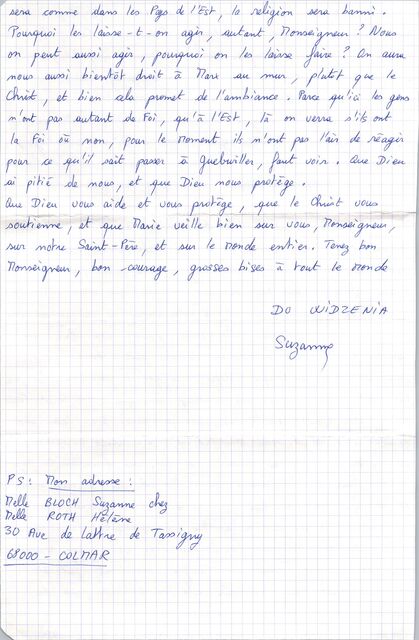 sera comme dans les Pays de l'Est, la religion sera banni.
Pourquoi les laisse-t-on agir, autant, Monseigneur ? Nous
on peut aussi agir, pourquoi on les laisse faire ? On aura
nous aussi bientôt droit à Marx au mur, plutôt que le
Christ, et bien cela promet de l'ambiance. Parce qu'ici les gens
n'ont pas autant de Foi, qu'à l'Est, là on verra s'ils ont
la Foi où non, pour le moment ils n'ont pas l'air de réagir
pour ce qu'il s'ait passer à Guebwiller, faut voir. Que Dieu
ai pitié de nous, et que Dieu nous protège.
Que Dieu vous aide et vous protège, que le Christ vous
soutienne, et que Marie veille bien sur vous, Monseigneur,
sur notre Saint-Père, et sur le Monde entier. Tenez bon
Monseigneur, bon courage, grosses bises à tout le monde
DO WIDZENIA
Suzanne
PS : Mon adresse :
Melle BLOCH Suzanne chez
Melle ROTH Hélène
30 Ave de Lattre de Tassigny
68000 - COLMAR